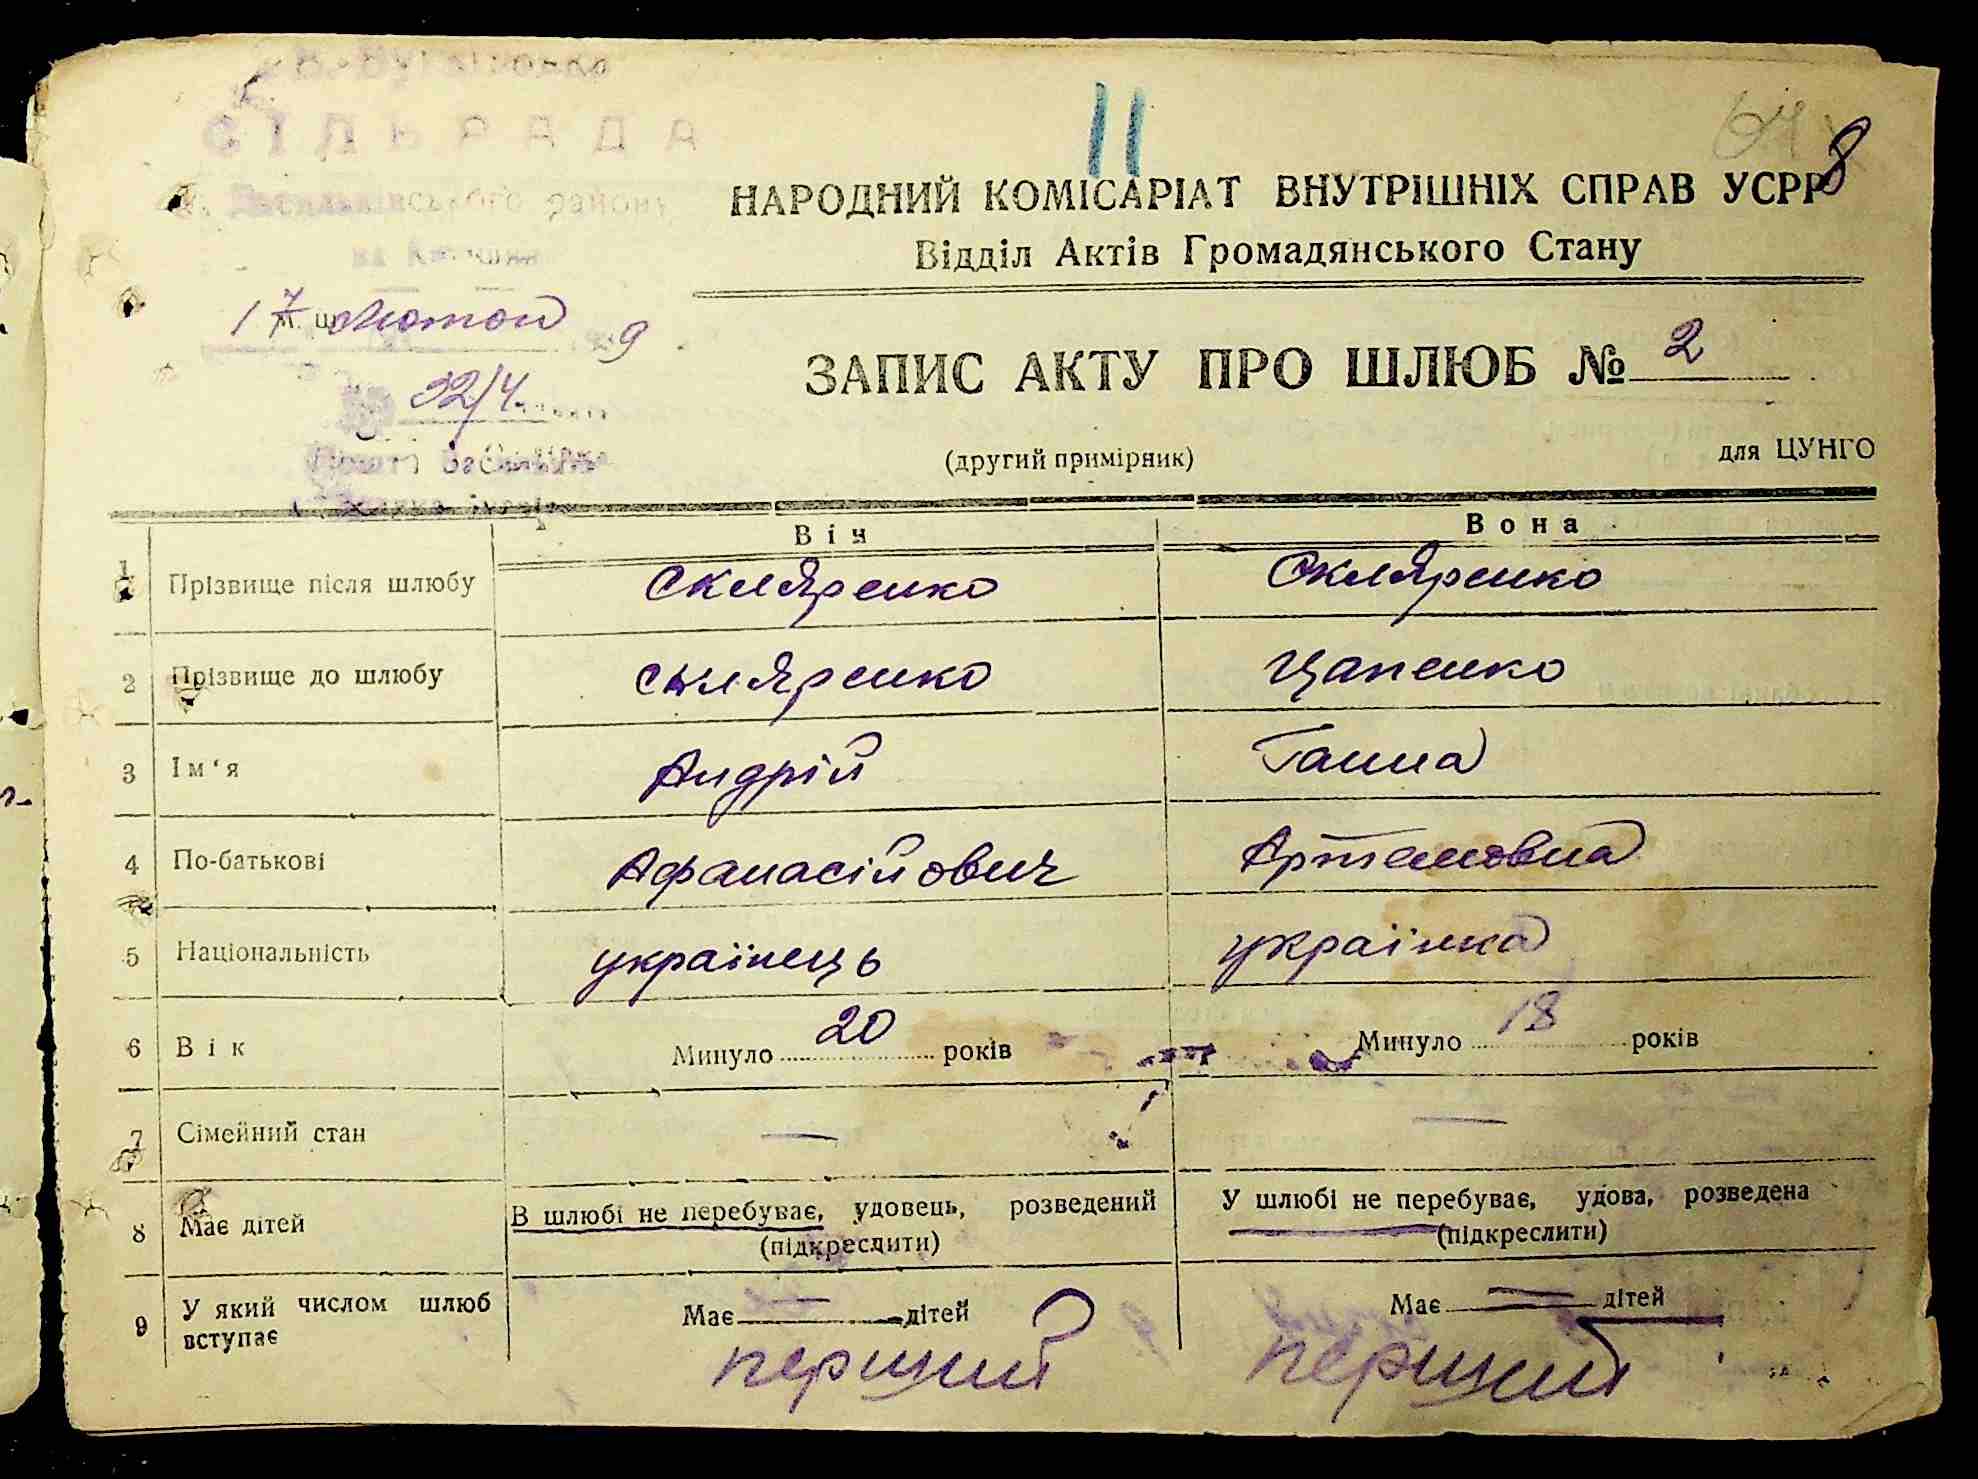 СІЛЬРАДА
11
64
8
Васильківського району
НАРОДНИЙ КОМІСАРІАТ ВНУТРІШНІХ СПРАВ УСРР
Відділ Актів Громадянського Стану
17 лютого 9
ЗАПИС АКТУ ПРО ШЛЮБ № 2
32/4
(другий примірник)
для ЦУНГО
Він Вона
1 Прізвище після шлюбу Скляренко Скляренко
2 Прізвище до шлюбу Скляренко Цапенко
3 Ім'я Андрій Ганна
4 По-батькові Афанасійович Артемовна
5 Національність українець українка
6 Вік Минуло 20 років Минуло 18 років
7 Сімейний стан — —
8 Має дітей В шлюбі не перебуває, удовець, розведений У шлюбі не перебуває, удова, розведена
(підкреслити) (підкреслити)
9 У який числом шлюб вступає Має — дітей Має — дітей
перший перший